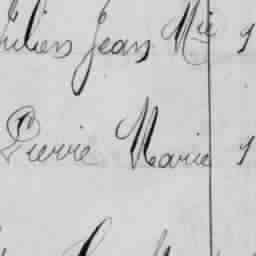 Julien Jean Mie 1
Pierre Marie 1